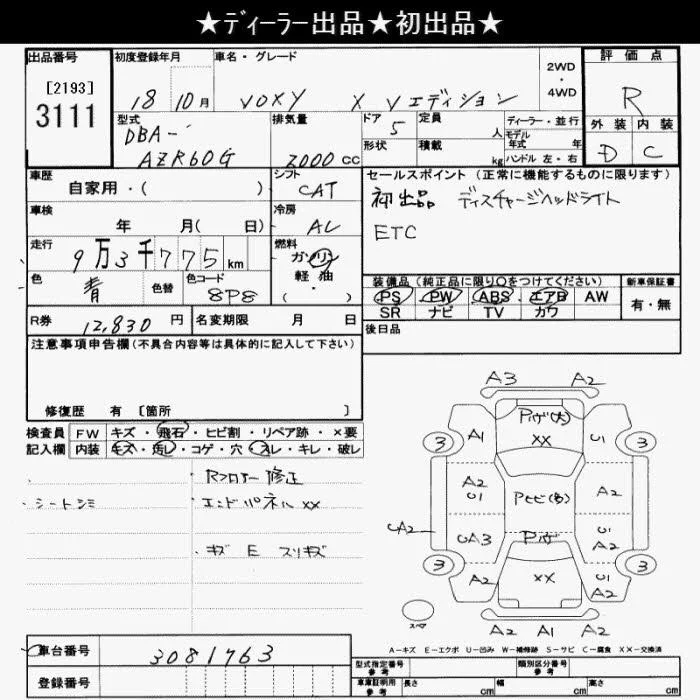 ★ディーラー出品★初出品★
出品番号 初度登録年月 車名・グレード 2WD・4WD 評価点
[2193]
3111
18 10月 VOXY X Vエディション R
型式 排気量 ドア 定員 ディーラー・並行 外装 内装
DBA-
AZR60G 2000cc 5 人 モデル年式 年 D C
形状 積載 kg ハンドル 左・右
車歴 シフト セールスポイント(正常に機能するものに限ります)
自家用・( ) CAT 初出品 ディスチャージヘッドライト
車検 冷房 ETC
年 月( 日) AC
走行 燃料
9万3千775km ガソリン
軽油
( )
色 青 色替 色コード 8P8
装備品(純正品に限り○をつけてください) 新車保証書
PS PW ABS エアB AW 有・無
SR ナビ TV カワ
R券 12,830円 名変期限 月 日 後日品
注意事項申告欄(不具合内容等は具体的に記入して下さい)
修復歴 有 [箇所 ]
検査員 FW キズ・飛石・ヒビ割・リペア跡・×要
記入欄 内装 キズ・汚レ・コゲ・穴・スレ・キレ・破レ
・Rフロアー修正
・シートシミ ・エンドパネルXX
・キズ E スリキズ
A3 A2
Pハゲ(大)
3 A1 XX U1 3
A2
U1 Pヒビ(多) A2
UA2 UA3 Pハゲ U1
A2
3 A2 XX U1
A2 3
スペア A2 A1 A2
A-キズ E-エクボ U-凹み W-補修跡 S-サビ C-腐食 XX-交換済
車台番号 3081763
登録番号
型式指定番号 参考 類別区分番号 参考
車庫証明用 参考 長さ cm 幅 cm 高さ cm